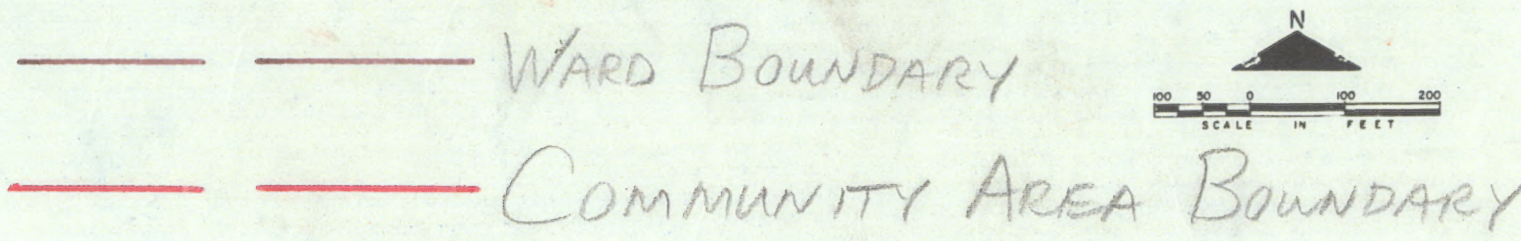 WARD BOUNDARY
N
100 50 0 100 200
SCALE IN FEET
COMMUNITY AREA BOUNDARY